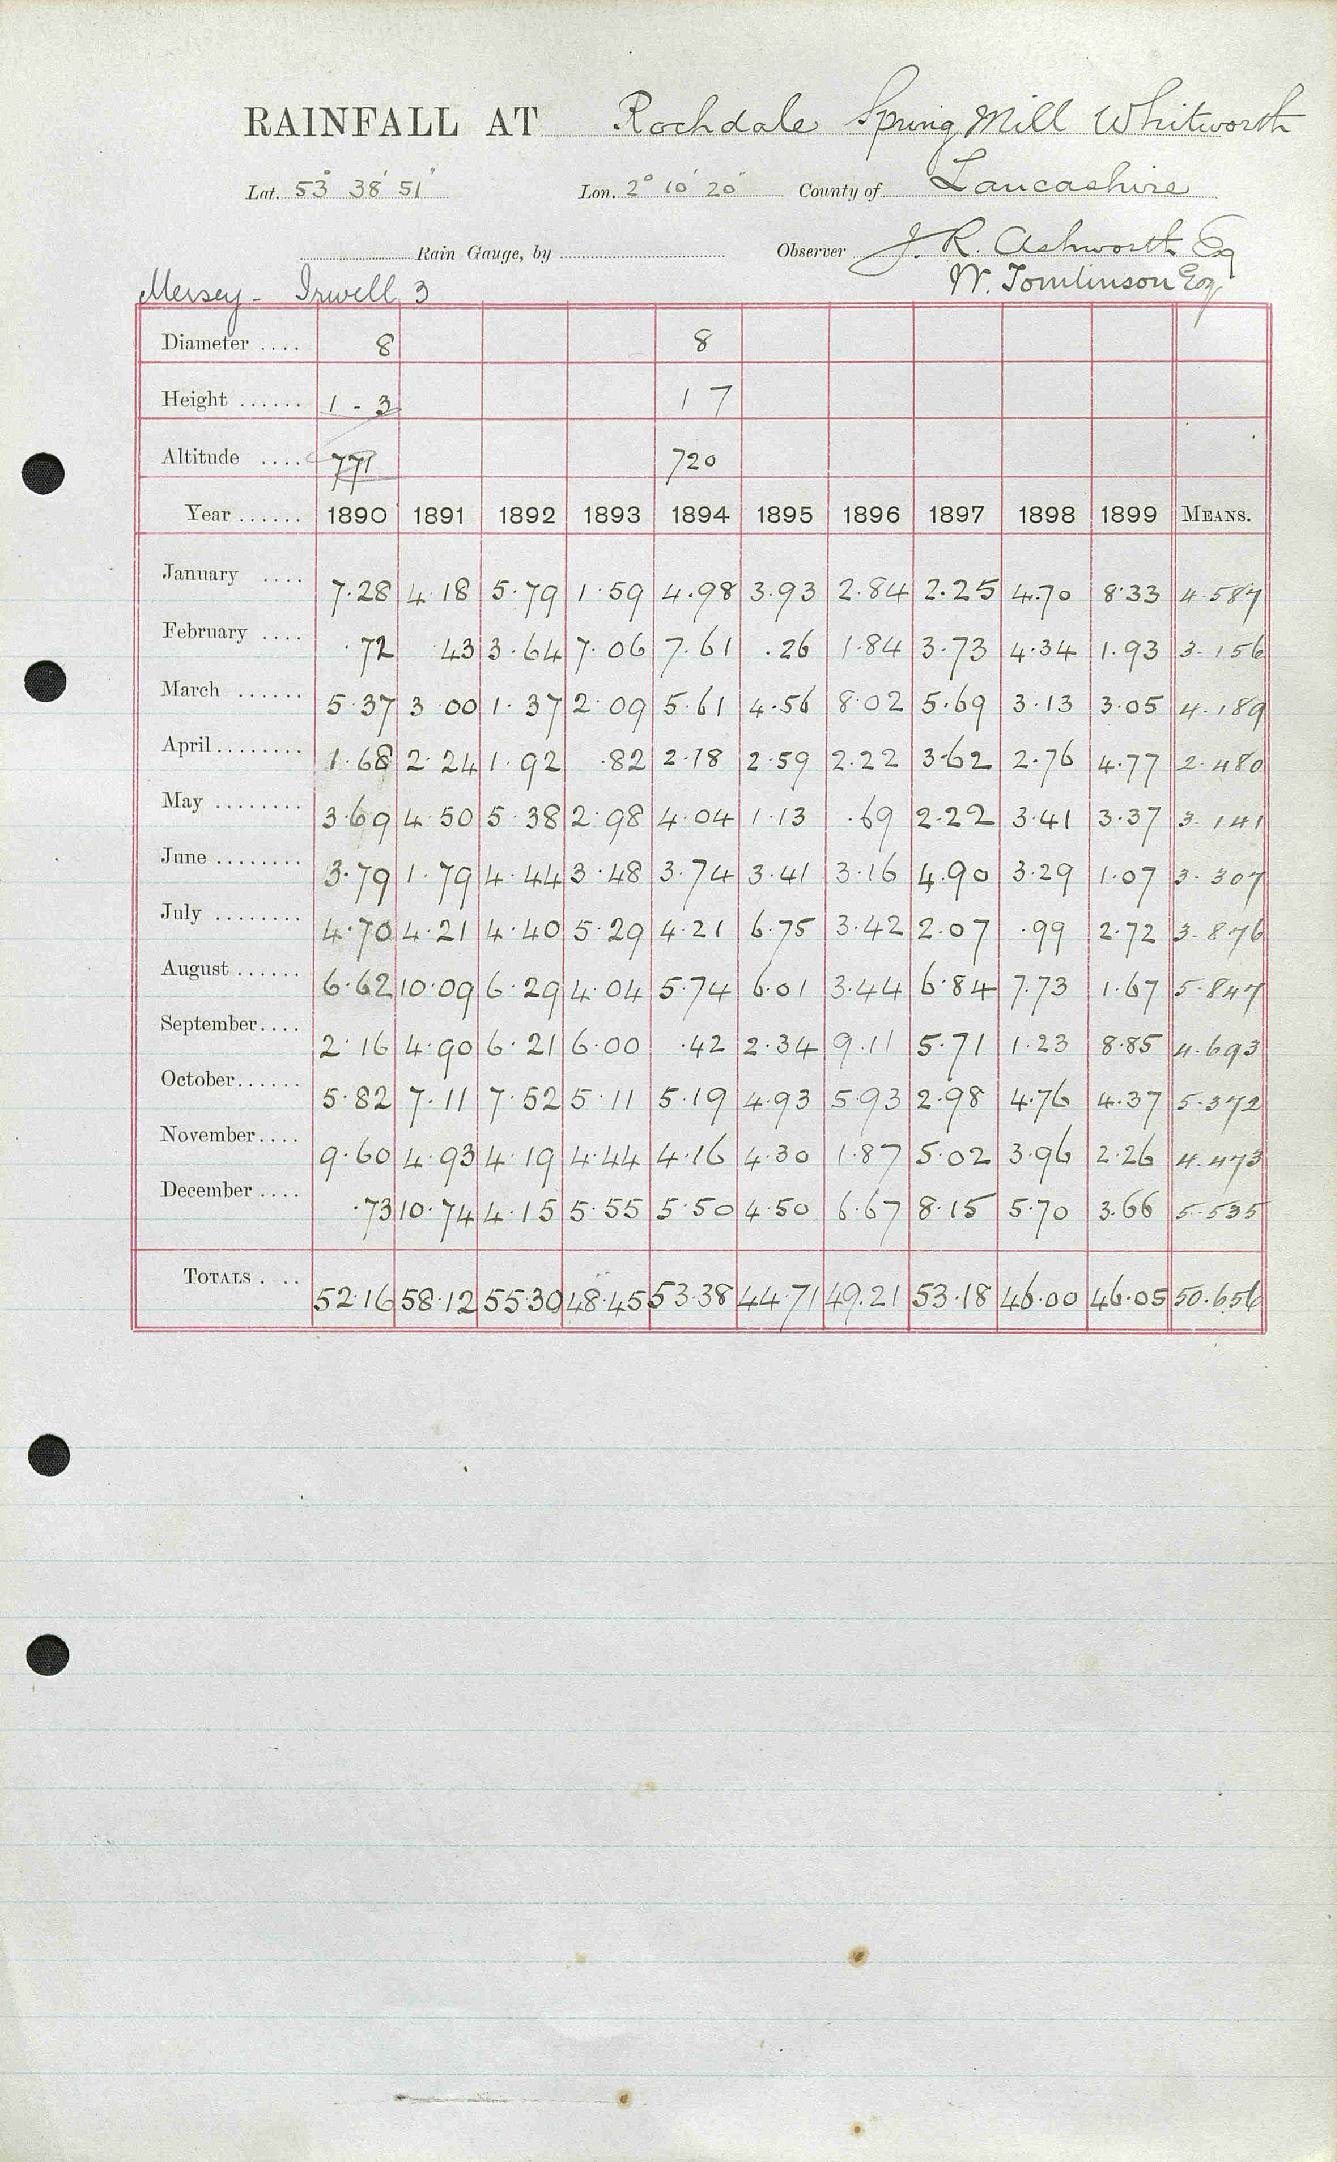 RAINFALL AT Rochdale Spring Mill Whitworth
Lat. 53° 38' 51" Lon. 2° 10' 20" County of Lancashire
Rain Gauge, by Observer J. R. Ashworth Esq
Mersey - Irwell 3 W. Tomlinson Esq
Diameter .... 8 8
Height ...... 1 - 3 1 7
Altitude .... 771 720
Year ...... 1890 1891 1892 1893 1894 1895 1896 1897 1898 1899 MEANS.
January .... 7.28 4.18 5.79 1.59 4.98 3.93 2.84 2.25 4.70 8.33 4.587
February .... .72 .43 3.64 7.06 7.61 .26 1.84 3.73 4.34 1.93 3.156
March ...... 5.37 3.00 1.37 2.09 5.61 4.56 8.02 5.69 3.13 3.05 4.189
April ........ 1.68 2.24 1.92 .82 2.18 2.59 2.22 3.62 2.76 4.77 2.480
May ........ 3.69 4.50 5.38 2.98 4.04 1.13 .69 2.22 3.41 3.37 3.141
June ........ 3.79 1.79 4.44 3.48 3.74 3.41 3.16 4.90 3.29 1.07 3.307
July ........ 4.70 4.21 4.40 5.29 4.21 6.75 3.42 2.07 .99 2.72 3.876
August ...... 6.62 10.09 6.29 4.04 5.74 6.01 3.44 6.84 7.73 1.67 5.847
September .... 2.16 4.90 6.21 6.00 .42 2.34 9.11 5.71 1.23 8.85 4.693
October ...... 5.82 7.11 7.52 5.11 5.19 4.93 5.93 2.98 4.76 4.37 5.372
November .... 9.60 4.93 4.19 4.44 4.16 4.30 1.87 5.02 3.96 2.26 4.473
December .... .73 10.74 4.15 5.55 5.50 4.50 6.67 8.15 5.70 3.66 5.535
TOTALS .... 52.16 58.12 55.30 48.45 53.38 44.71 49.21 53.18 46.00 46.05 50.656